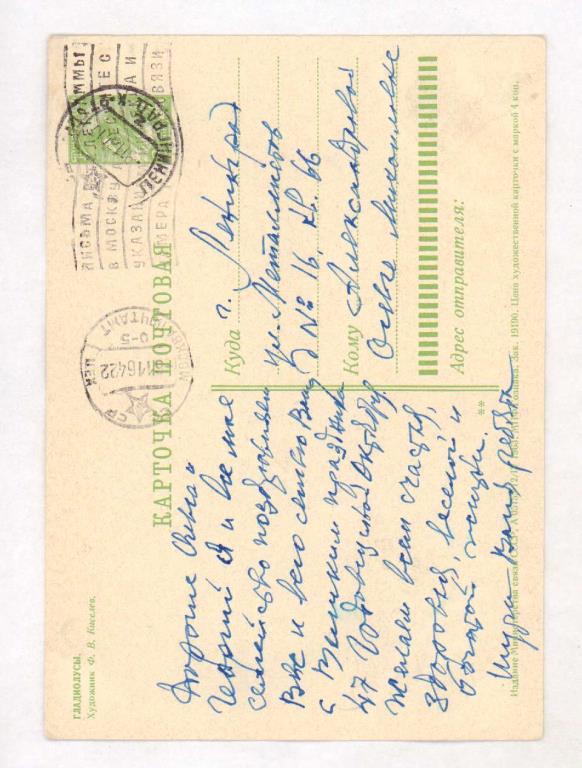 ГЛАДИОЛУСЫ.
Художник Ф. В. Киселев.
КАРТОЧКА ПОЧТОВАЯ
Дорогие Ольга и
Георгий Я и все мое
семейство поздравляем
Вас и всю семью Вашу
с Великим праздником
47 годовщиной Октября
Желаем всем счастья,
здоровья, веселой и
богатой жизни.
Куда г. Ленинград
ул. Металлистов
д № 16 кв. 66
Кому Александровой
Ольге Михайловне
Адрес отправителя:
Издание Министерства связи СССР
Цена художественной карточки с маркой 4 коп.
ПИСЬМА
В МОСКВУ
УКАЗА
НОМЕРА
СВЯЗИ
ЛЕНИНГРАД